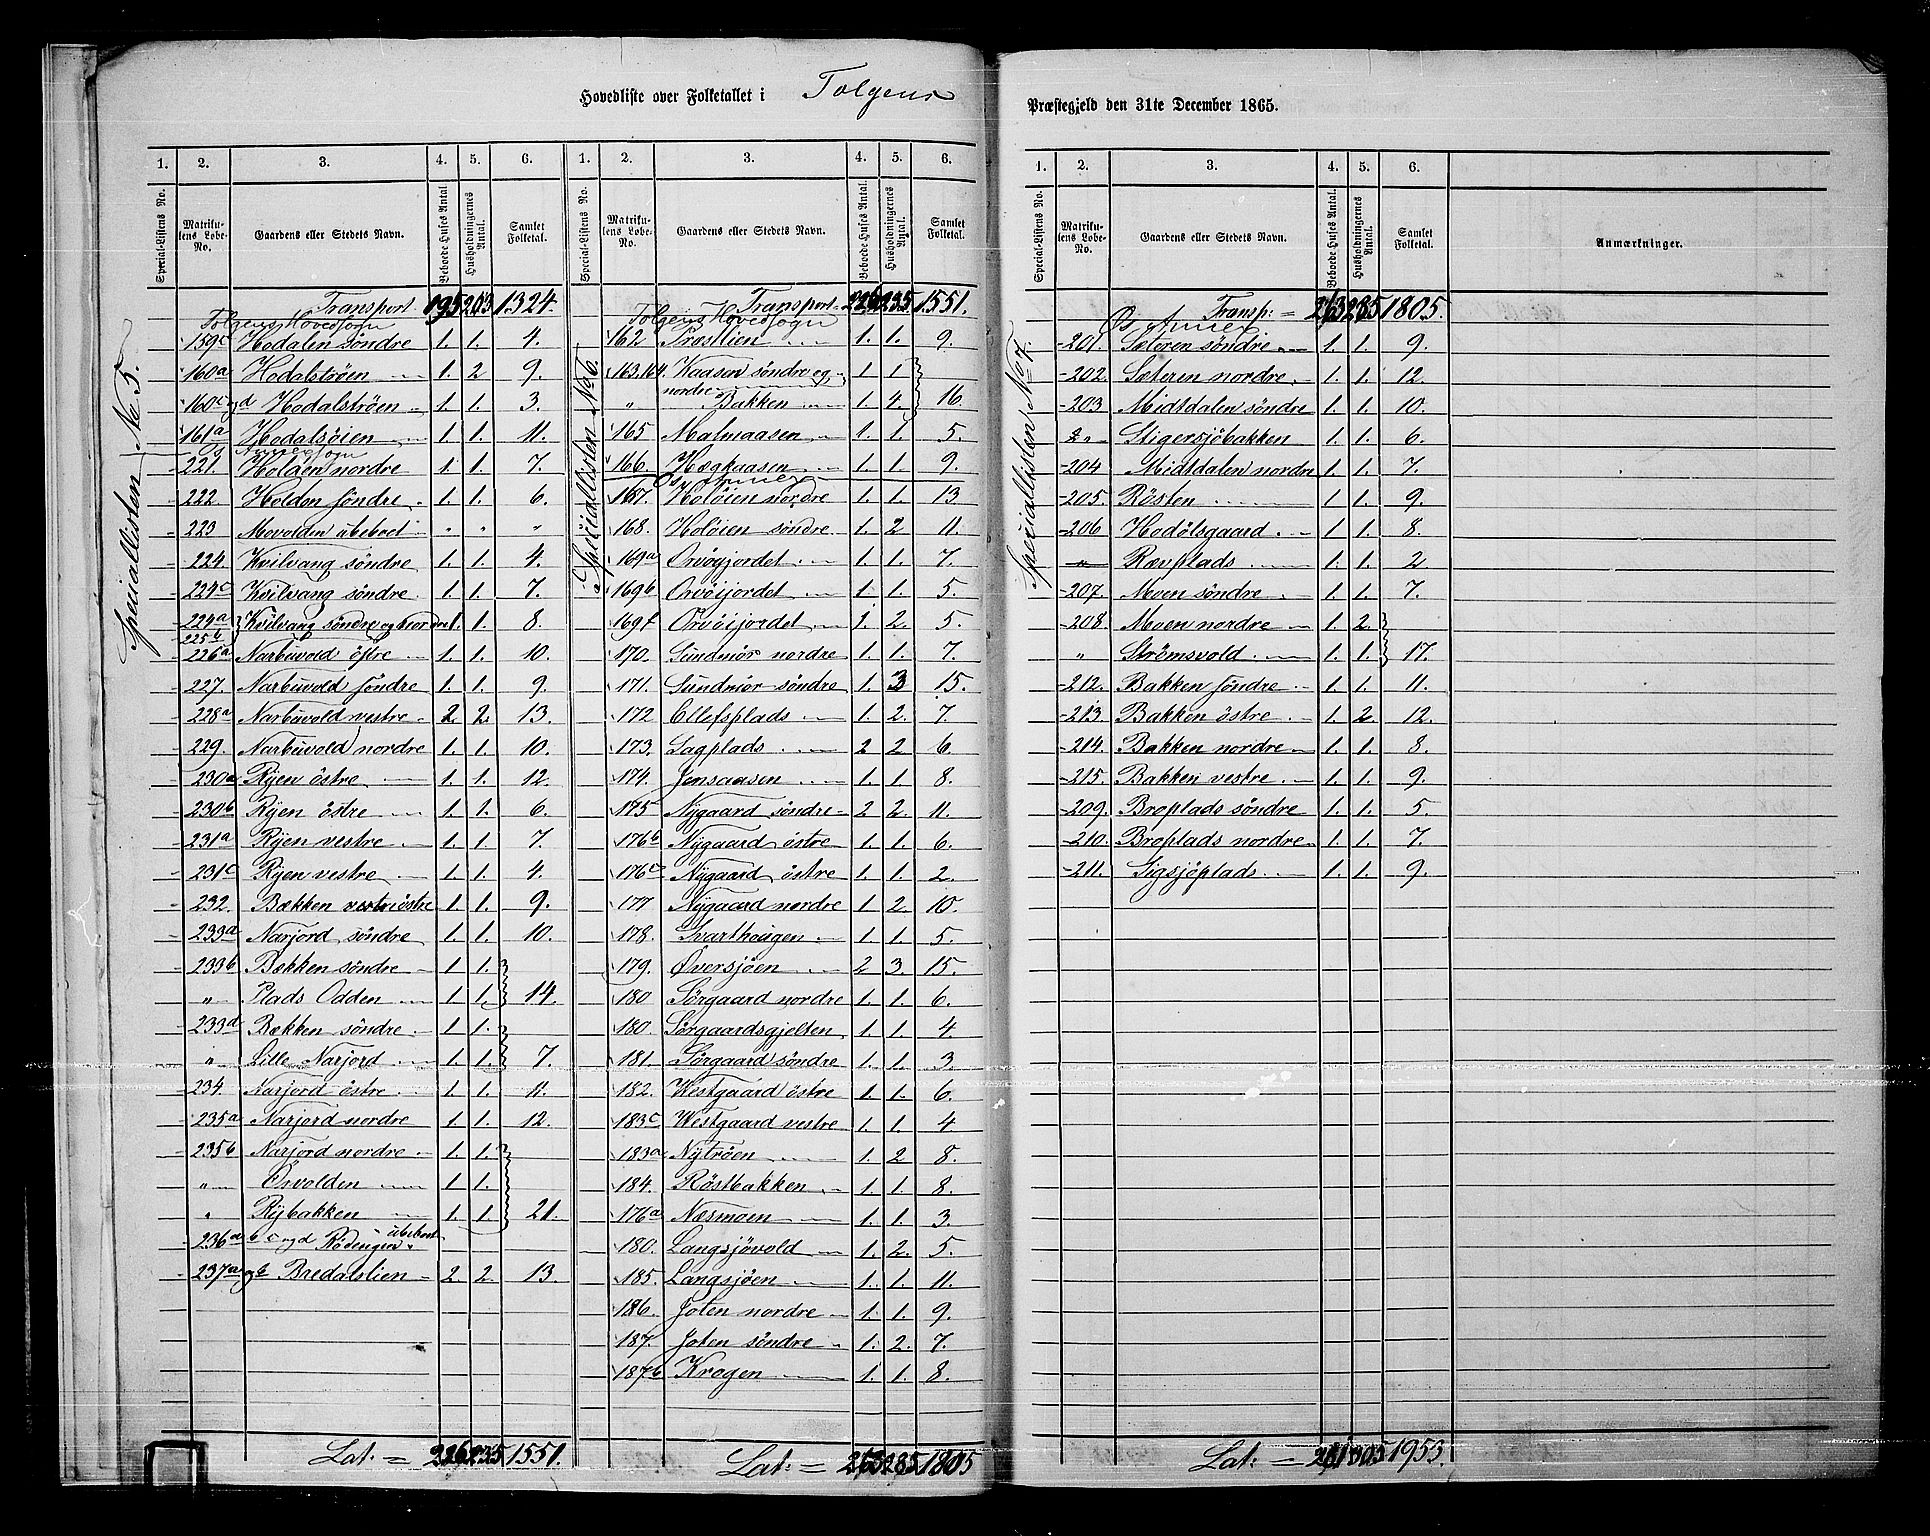 Hovedliste over Folketallet i Tolgens
Præstegjeld den 31te December 1865.
1. 2. 3. 4. 5. 6. 1. 2. 3. 4. 5. 6.
Special-Listens No. Matrikulens Løbe-No. Gaardens eller Stedets Navn. Beboede Huses Antal. Husholdningernes Antal. Samlet Folketal. Special-Listens No. Matrikulens Løbe-No. Gaardens eller Stedets Navn. Beboede Huses Antal. Husholdningernes Antal. Samlet Folketal.
Speciallisten No 5.
Transport 195 203 1324.
Tolgens Hovedsogn
159c Hodalen söndre 1. 1. 4.
160a Hodalströen 1. 2 9.
160c og d Hodalströen 1. 1. 3.
161a Hodalsöien 1. 1. 11.
Os Annexsogn
221. Holden nordre 1. 1. 7.
222. Holden söndre 1. 1. 6.
223 Movolden ubeboet " " "
224. Kvilvang söndre 1. 1. 4.
224c Kvilvang söndre 1. 1. 7.
224a 225b Kvilvang söndre og nordre 1. 1. 8.
226a Narbuvold östre 1. 1. 10.
227. Narbuvold söndre 1. 1. 9.
228a Narbuvold vestre 2. 2. 13.
229. Narbuvold nordre 1. 1. 10.
230a Ryen östre 1. 1. 12.
230b Ryen östre 1. 1. 6.
231a Ryen vestre 1. 1. 7.
231c Ryen vestre 1. 1. 4.
232. Bækken östre 1. 1. 9.
233a Narjord söndre 1. 1. 10.
233b Bækken söndre 1. 1.
" Plads Odden 1. 1. 14.
233d Bækken söndre 1. 1.
" Lille Narjord 1. 1. 7.
234. Narjord östre 1. 1. 11.
235a Narjord nordre 1. 1. 12.
235b Narjord nordre 1. 1.
" Örvolden 1. 1.
" Rybakken 1. 1. 21.
236a b c og d ubeboet
237a og b Bredalslien 2. 2. 13.
Lat. = 226 235 1551.
Speciallisten No 6.
Transport 226 235 1551.
Tolgens Hovedsogn
162 Præstlien 1. 1. 9.
163.164 Kaasen söndre og nordre 1. 1
" Bakken 1. 4. 16.
165 Malmaasen 1. 1. 5.
166. Hægkaasen 1. 1. 9.
Os Annex
167. Holöien nordre 1. 1. 13
168. Holöien söndre 1. 2 11.
169a Orvöijordet 1. 1. 7.
169b Orvöijordet 1. 1. 5.
169f Orvöijordet 1. 2. 5.
170. Sundmör nordre 1. 1. 7.
171. Sundmör söndre 1. 3 15.
172 Ellefsplads 1. 2. 7.
173. Sagplads 2 2 6.
174. Jensaasen 1. 1. 8.
175 Nygaard söndre 2 2. 11.
176b Nygaard östre 1. 1. 6.
176c Nygaard östre 1. 1. 2.
177 Nygaard nordre 1. 2. 10.
178. Svarthougen 1. 1. 5.
179. Øversjöen 2 3. 15.
180 Sörgaard nordre 1. 1. 6.
180 Sörgaardsgjelten 1. 1. 4
181. Sörgaard söndre 1. 1. 3
182. Westgaard östre 1. 1. 6.
183c Westgaard vestre 1. 1. 4
183a Nytröen 1. 2 8.
184. Röstbakken 1. 1. 8.
176a Næsmoen 1. 1. 3.
180. Langsjövold 1. 2. 5.
185. Langsjöen 1. 1. 11.
186. Joten nordre 1. 1. 9.
187. Joten söndre 1. 2. 7.
187b Krogen 1. 1. 8.
Lat: = 263 285 1805
1. 2. 3. 4. 5. 6.
Special-Listens No. Matrikulens Løbe-No. Gaardens eller Stedets Navn. Beboede Huses Antal. Husholdningernes Antal. Samlet Folketal. Anmærkninger.
Speciallisten No 7.
Transp: = 263 285 1805.
Os Annex.
201. Sæteren söndre 1. 1. 9.
202. Sæteren nordre 1. 1. 12.
203 Midtdalen söndre 1. 1. 10.
" Stigersjöbakken 1. 1. 6.
204 Midtdalen nordre 1. 1. 7.
205. Rösten 1. 1. 9.
206 Hodölsgaard 1. 1. 8.
" Rævplads 1. 1. 2
207. Moen söndre 1. 1. 7.
208. Moen nordre 1. 2.
" Strömsvold 1. 1. 17.
212. Bakken söndre 1. 1. 11.
213 Bakken östre 1. 2. 12.
214. Bakken nordre 1. 1. 8.
215. Bakken vestre 1. 1. 9.
209. Broplads söndre 1. 1. 5
210. Broplads nordre 1. 1. 7.
211. Sigsjöplads 1. 1. 9.
Lat: = 281 305 1953.